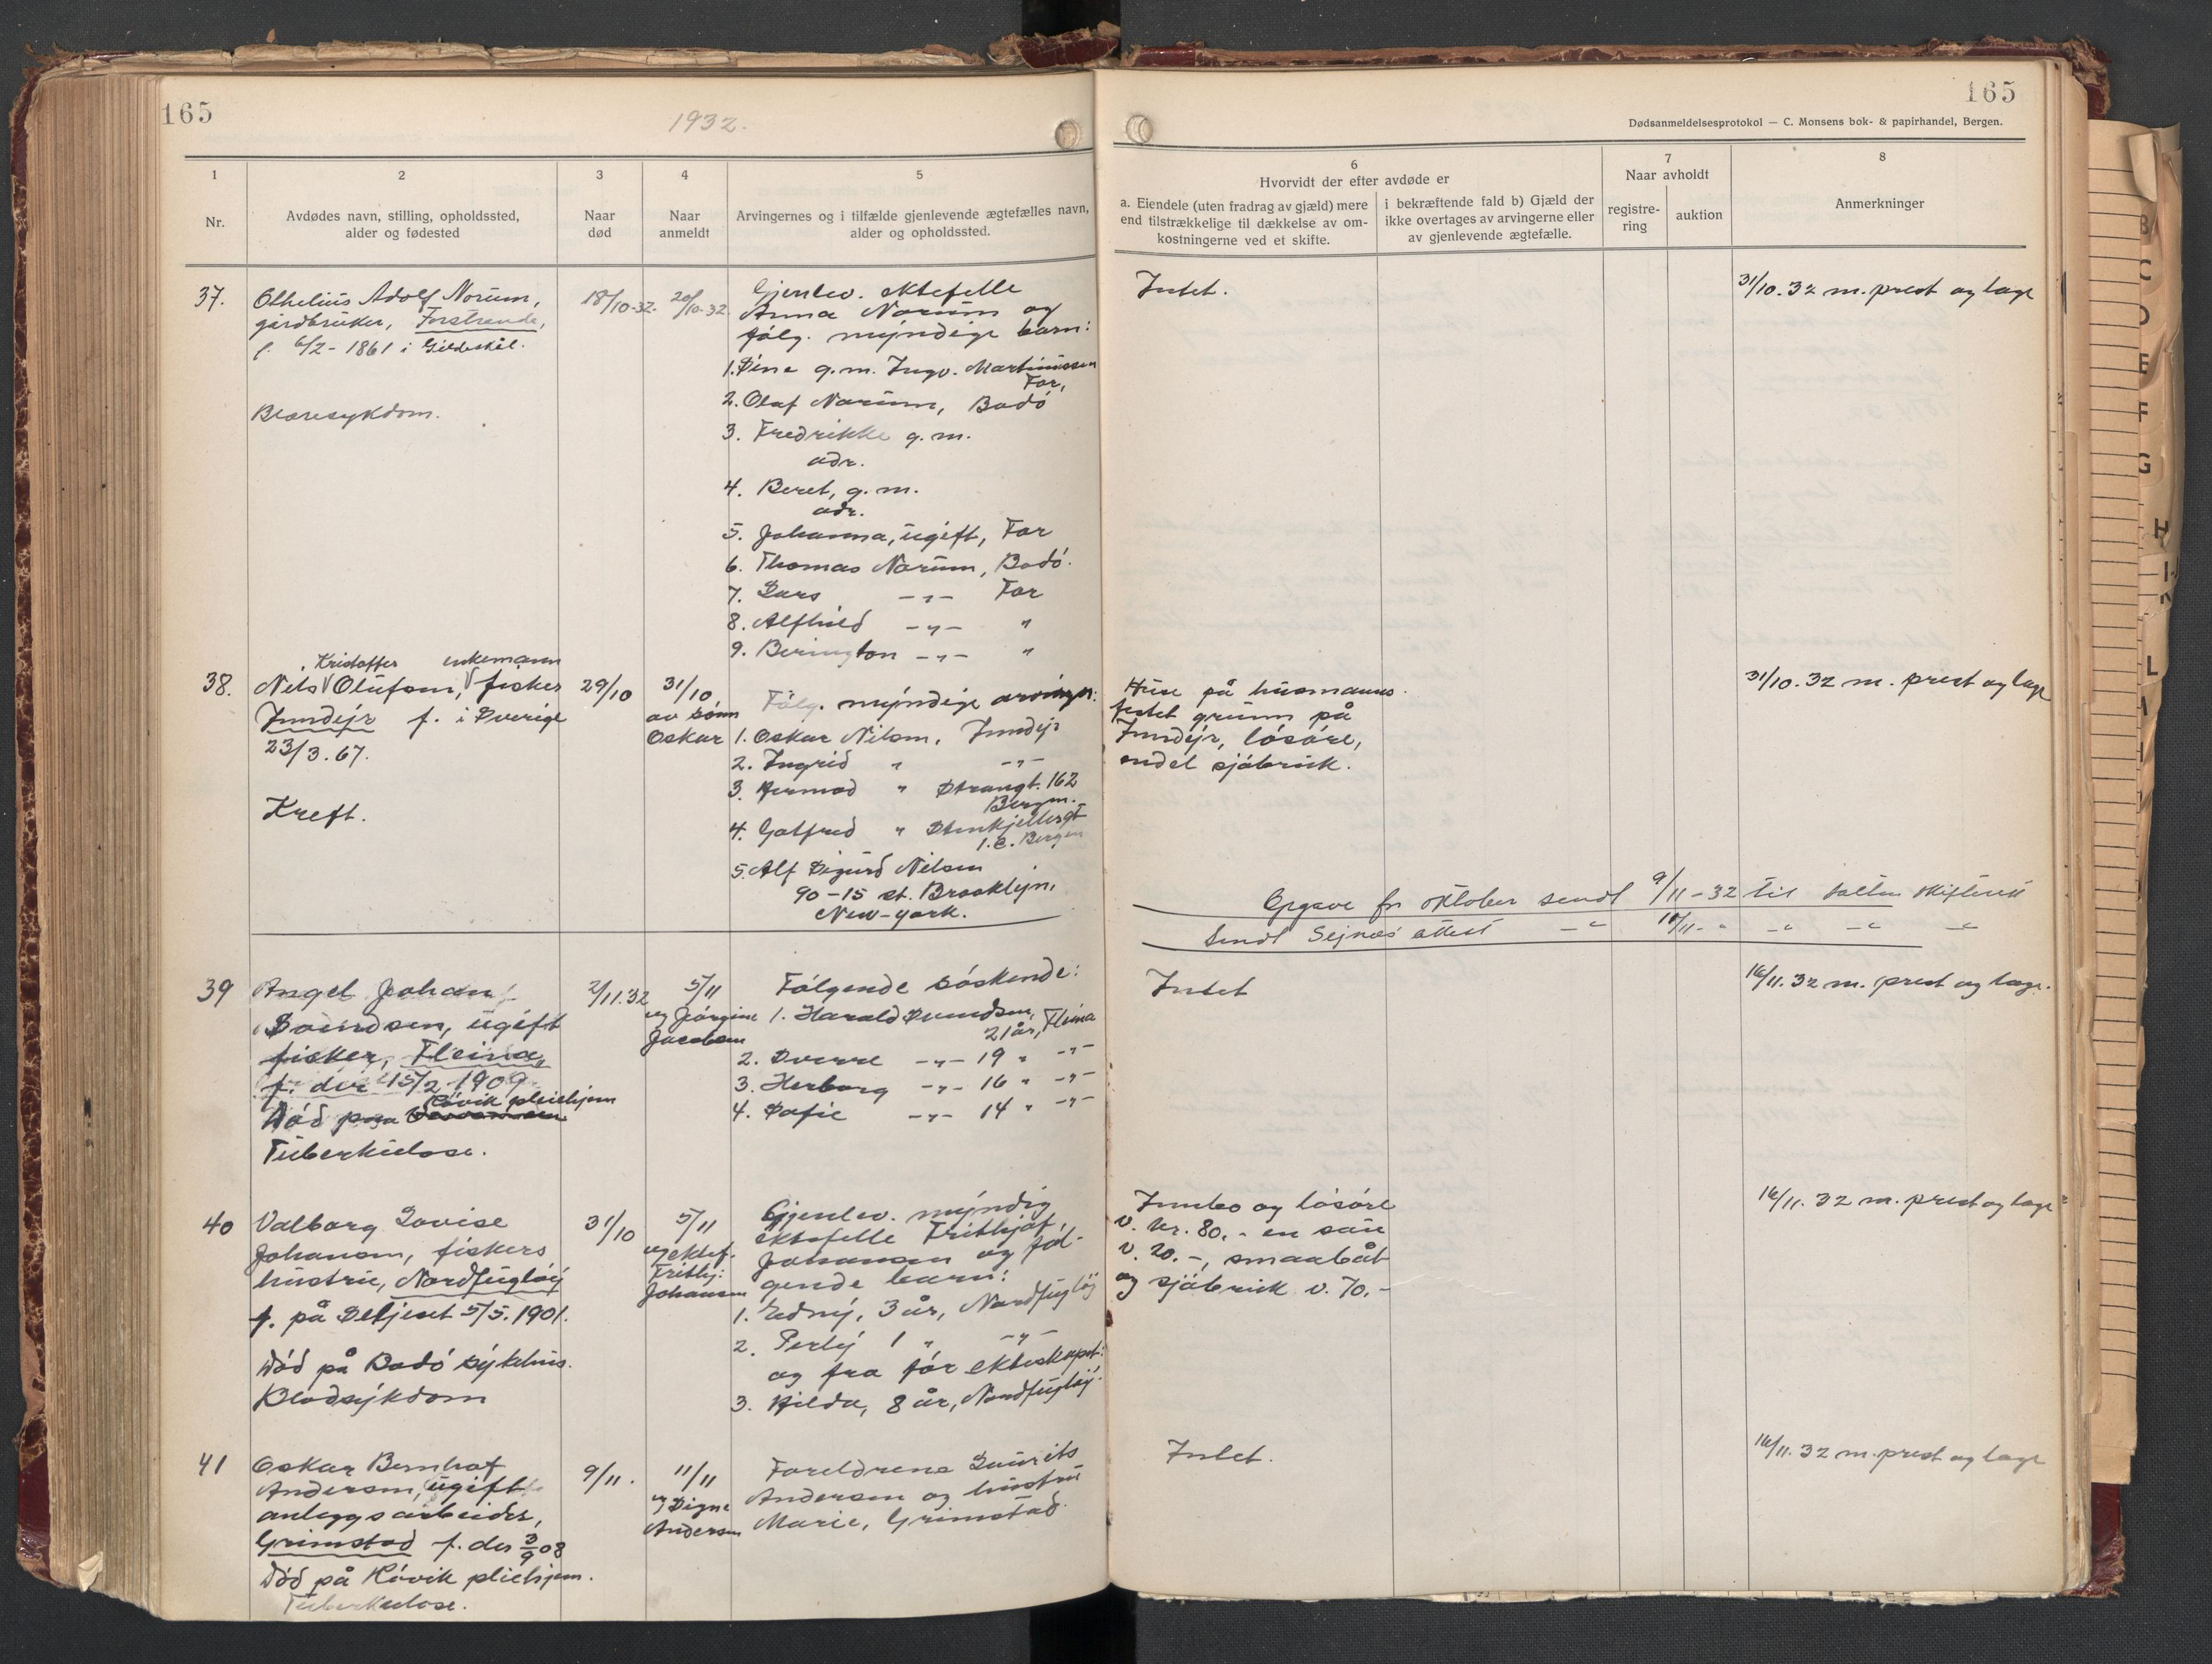 165
1932.
1
2
3
4
5
Nr.
Avdødes navn, stilling, opholdssted,
alder og fødested
Naar
død
Naar
anmeldt
Arvingernes og i tilfælde gjenlevende ægtefælles navn,
alder og opholdssted.
37.
Othelius Adolf Norum,
gårdbruker, Forstranda,
f. 6/2 - 1861 i Gildeskål.
Blæresykdom.
18/10-32.
20/10-32
Gjenlev. ektefelle
Anna Norum og
følg. myndige barn:
1. Sina g.m. Ingv. Martinussen
For,
2. Olaf Norum, Bodø
3. Fredrikke g.m.
adr.
4. Beret, g.m.
adr.
5. Johanna, ugift, For
6. Thomas Norum, Bodø.
7. Lars -"- For
8. Alfhild -"- "
9. Berington -"- "
38.
Kristoffer enkemann
Nils Olufsen, fisker
Inndyr f. i Sverige
23/3.67.
Kreft.
29/10
31/10
av sønn
Oskar
Følg. myndige arvinger:
1. Oskar Nilsen, Inndyr
2. Ingrid " -"-
3. Hermod " Strangt. 162
Bergen.
4. Gotfred " Stenkjellergt
1.c. Bergen
5. Alf Sigurd Nilsen
90-15 st. Brooklyn,
New-york.
39
Angel Johan
Svendsen, ugift
fisker, Fleina,
f. der 15/2 1909
Høvik pleiehjem
Død paa
Tuberkulose.
2/11.32
5/11
ved Jørgine
Jacobsen
Følgende søskende:
1. Harald Svendsen,
21 år, Fleina
2. Sverre -"- 19 " -"-
3. Herborg -"- 16 " -"-
4. Sofie -"- 14 " -"-
40
Valborg Lovise
Johansen, fiskers
hustru, Nordfugløy
f. på Seljeset 5/5.1901.
Død på Bodø sykehus.
Blodsykdom
31/10
5/11
ved ektef.
Frithj:
Johansen
Gjenlev. myndig
ektefelle Frithjof
Johansen og føl-
gende barn:
1. Edny, 3 år, Nordfugløy
2. Perly 1 " -"-
og fra før ekteskapet:
3. Hilda, 8 år, Nordfugløy.
41
Oskar Bernhof
Andersen, ugift
anleggsarbeider,
Grimstad f. der 3/9 08
Død på Høvik pleiehjem.
Tuberkulose.
9/11.
11/11
ved Signe
Andersen
Foreldrene Laurits
Andersen og hustru
Marie, Grimstad.
165
Dødsanmeldelsesprotokol — C. Monsens bok- & papirhandel, Bergen.
6
Hvorvidt der efter avdøde er
a. Eiendele (uten fradrag av gjæld) mere
end tilstrækkelige til dækkelse av om-
kostningerne ved et skifte.
i bekræftende fald b) Gjæld der
ikke overtages av arvingerne eller
av gjenlevende ægtefælle.
7
Naar avholdt
registre-
ring
auktion
8
Anmerkninger
Intet.
31/10.32 m. prest og læge
Huse på husmanns
festet grunn på
Inndyr, løsøre,
endel sjøbruk.
31/10.32 m. prest og læge
Opgave for oktober sendt 9/11-32 til Salten skifterett
Sendt attest -"- 10/11-" -"- -"- -"-
Intet
16/11.32 m. prest og læge.
Innbo og løsøre
v. kr. 80,- en sau
v. 20.-, smaabåt
og sjøbruk v. 70,-
16/11.32 m. prest og læge
Intet.
16/11.32 m. prest og læge
B
C
D
E
F
G
H
I
K
L